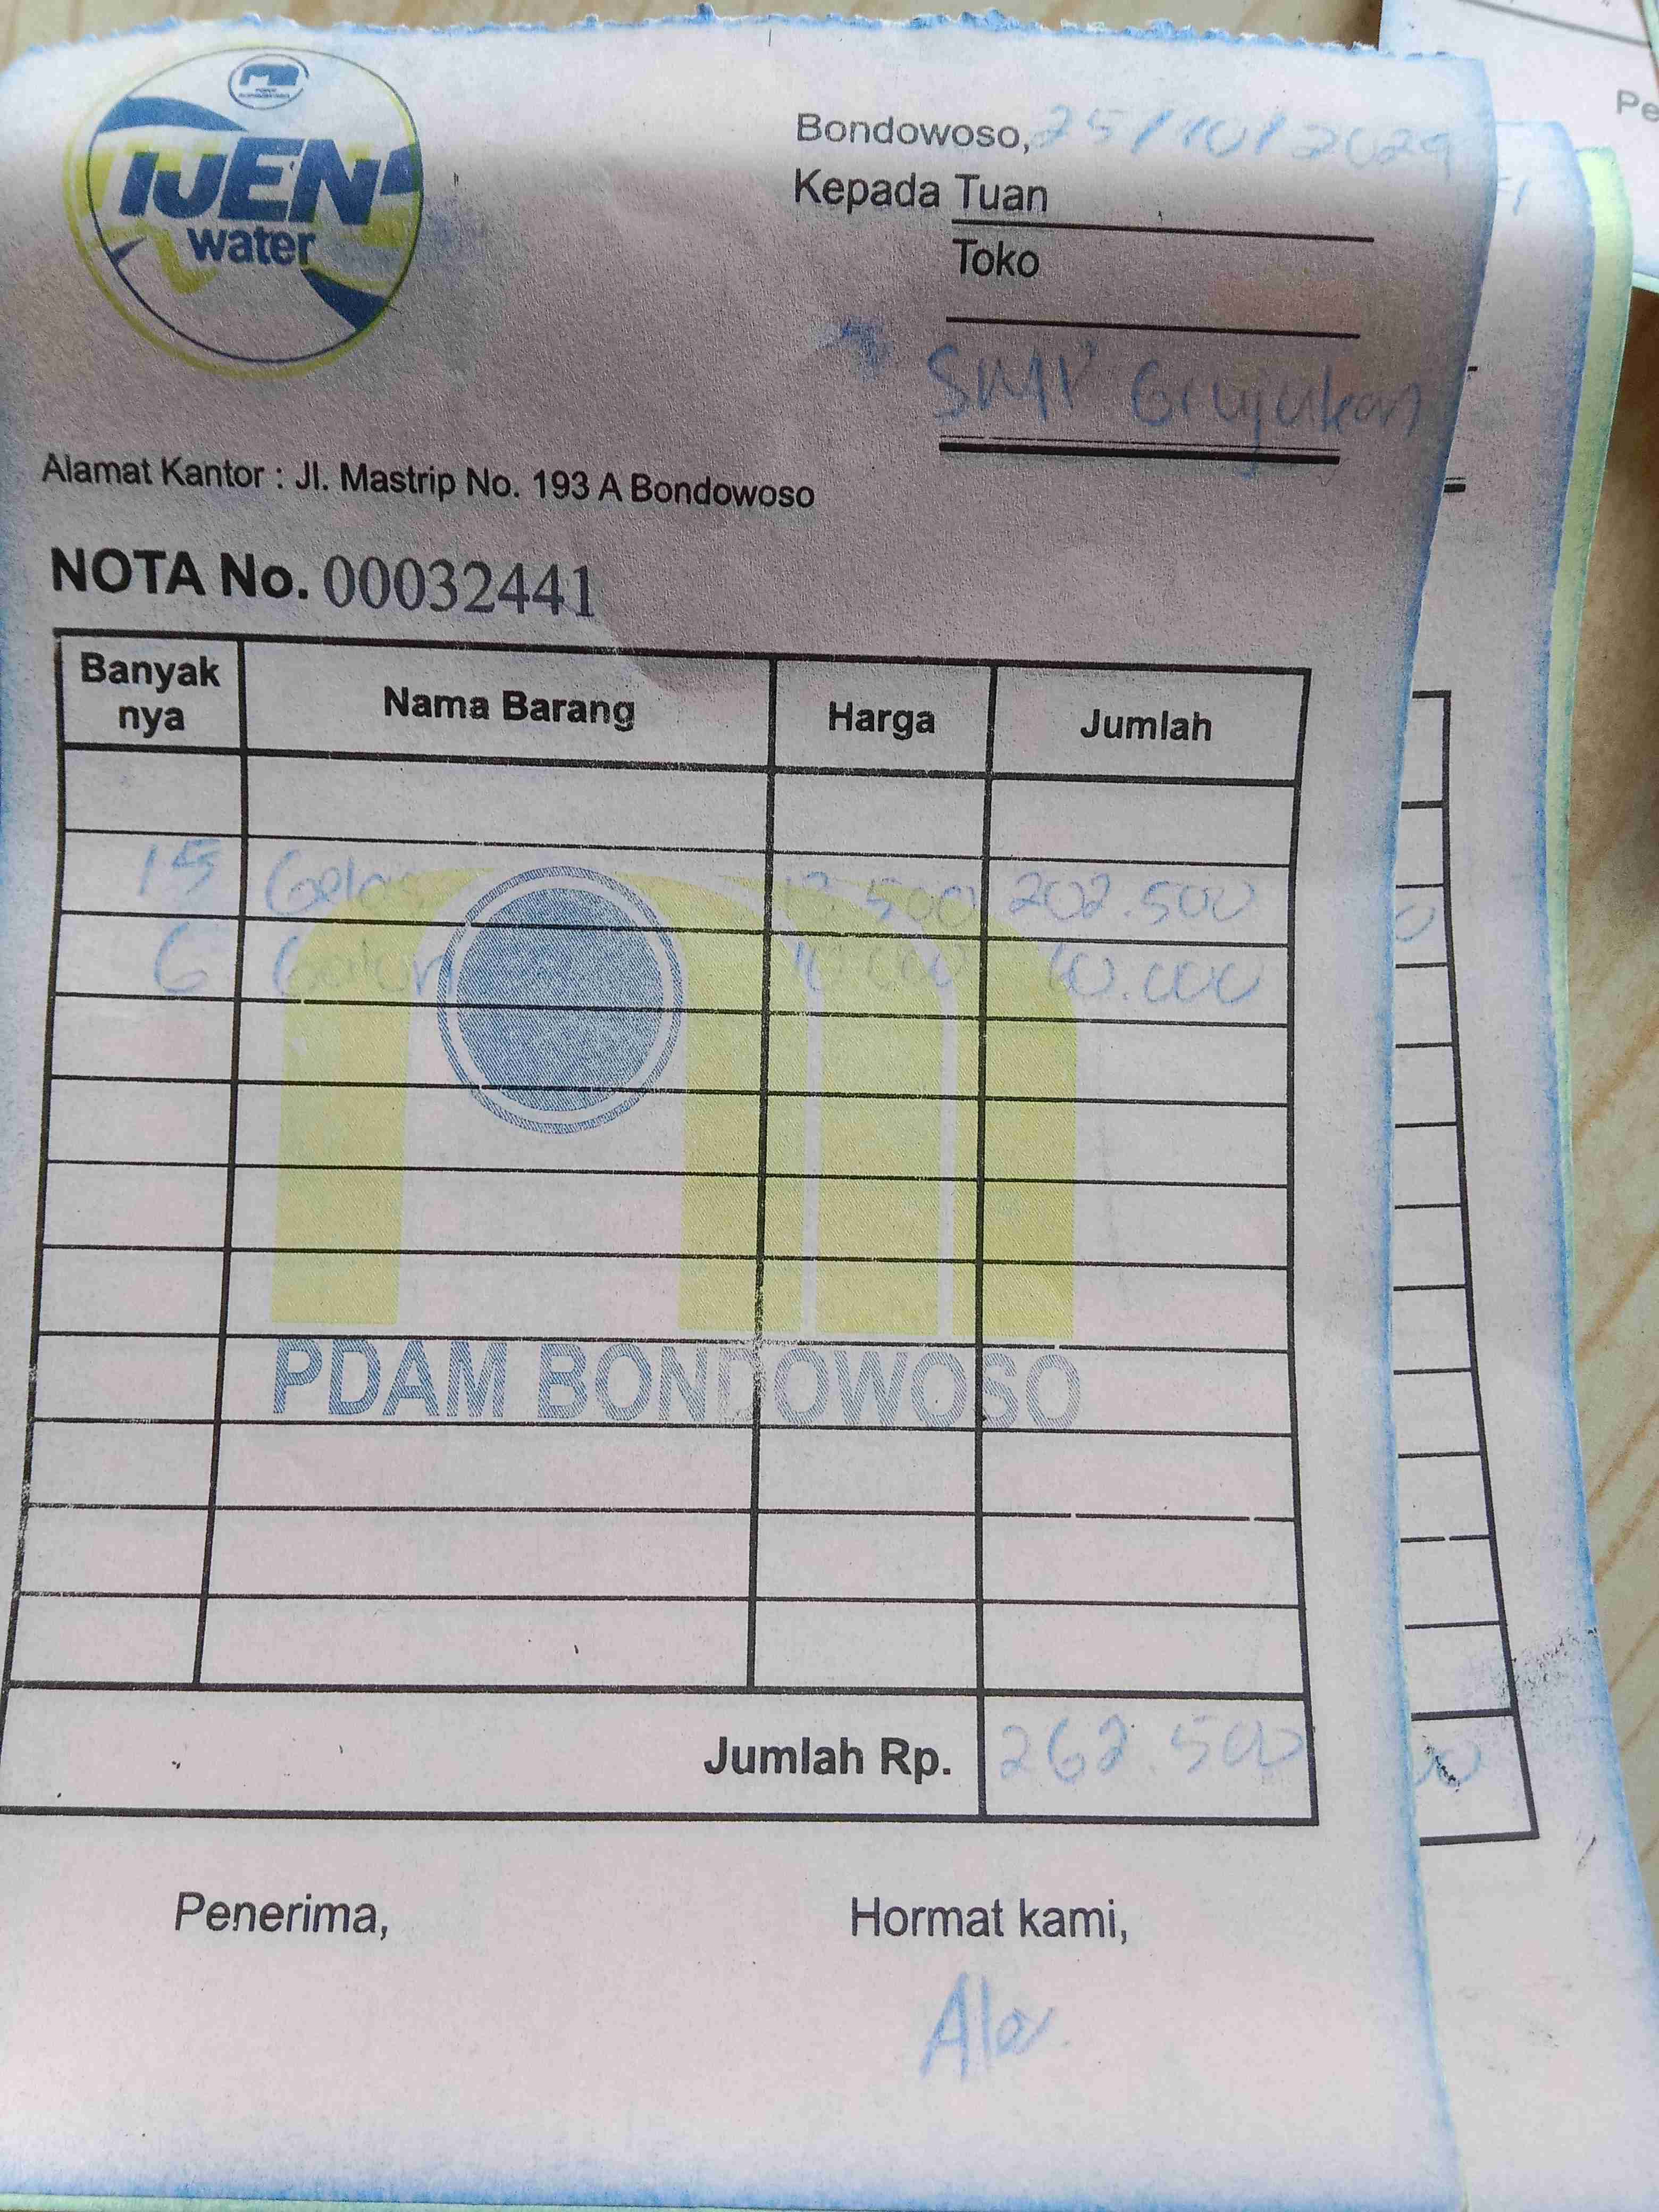 IJEN
water
Bondowoso, 25/10/2024
Kepada Tuan
Toko
SMP Grujukan
Alamat Kantor : Jl. Mastrip No. 193 A Bondowoso
NOTA No. 00032441
Banyak nya Nama Barang Harga Jumlah
15 Gelas 13.500 202.500
6 Galon 10.000 60.000
PDAM BONDOWOSO
Jumlah Rp. 262.500
Penerima, Hormat kami,
Pe